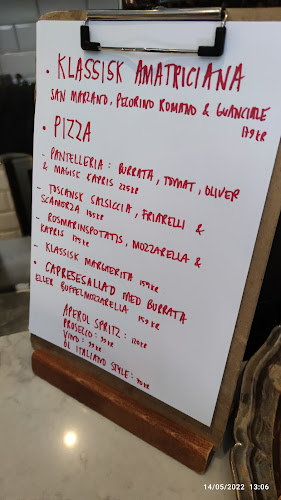 • KLASSISK AMATRICIANA
SAN MARZANO, PECORINO ROMANO & GUANCIALE
179 KR
• PIZZA
- PANTELLERIA: BURRATA, TOMAT, OLIVER
& MAGISK KAPRIS 225 KR
- TOSCANSK SALSICCIA, FRIARELLI &
SCAMORZA 185 KR
- ROSMARINSPOTATIS, MOZZARELLA &
KAPRIS 175 KR
- KLASSISK MARGHERITA 159 KR
• CAPRESESALLAD MED BURRATA
ELLER BUFFELMOZZARELLA 159 KR
APEROL SPRITZ: 120 KR
PROSECCO: 99 KR
VINO: 99 KR
ÖL ITALIANO STYLE: 70 KR
14/05/2022 13:06